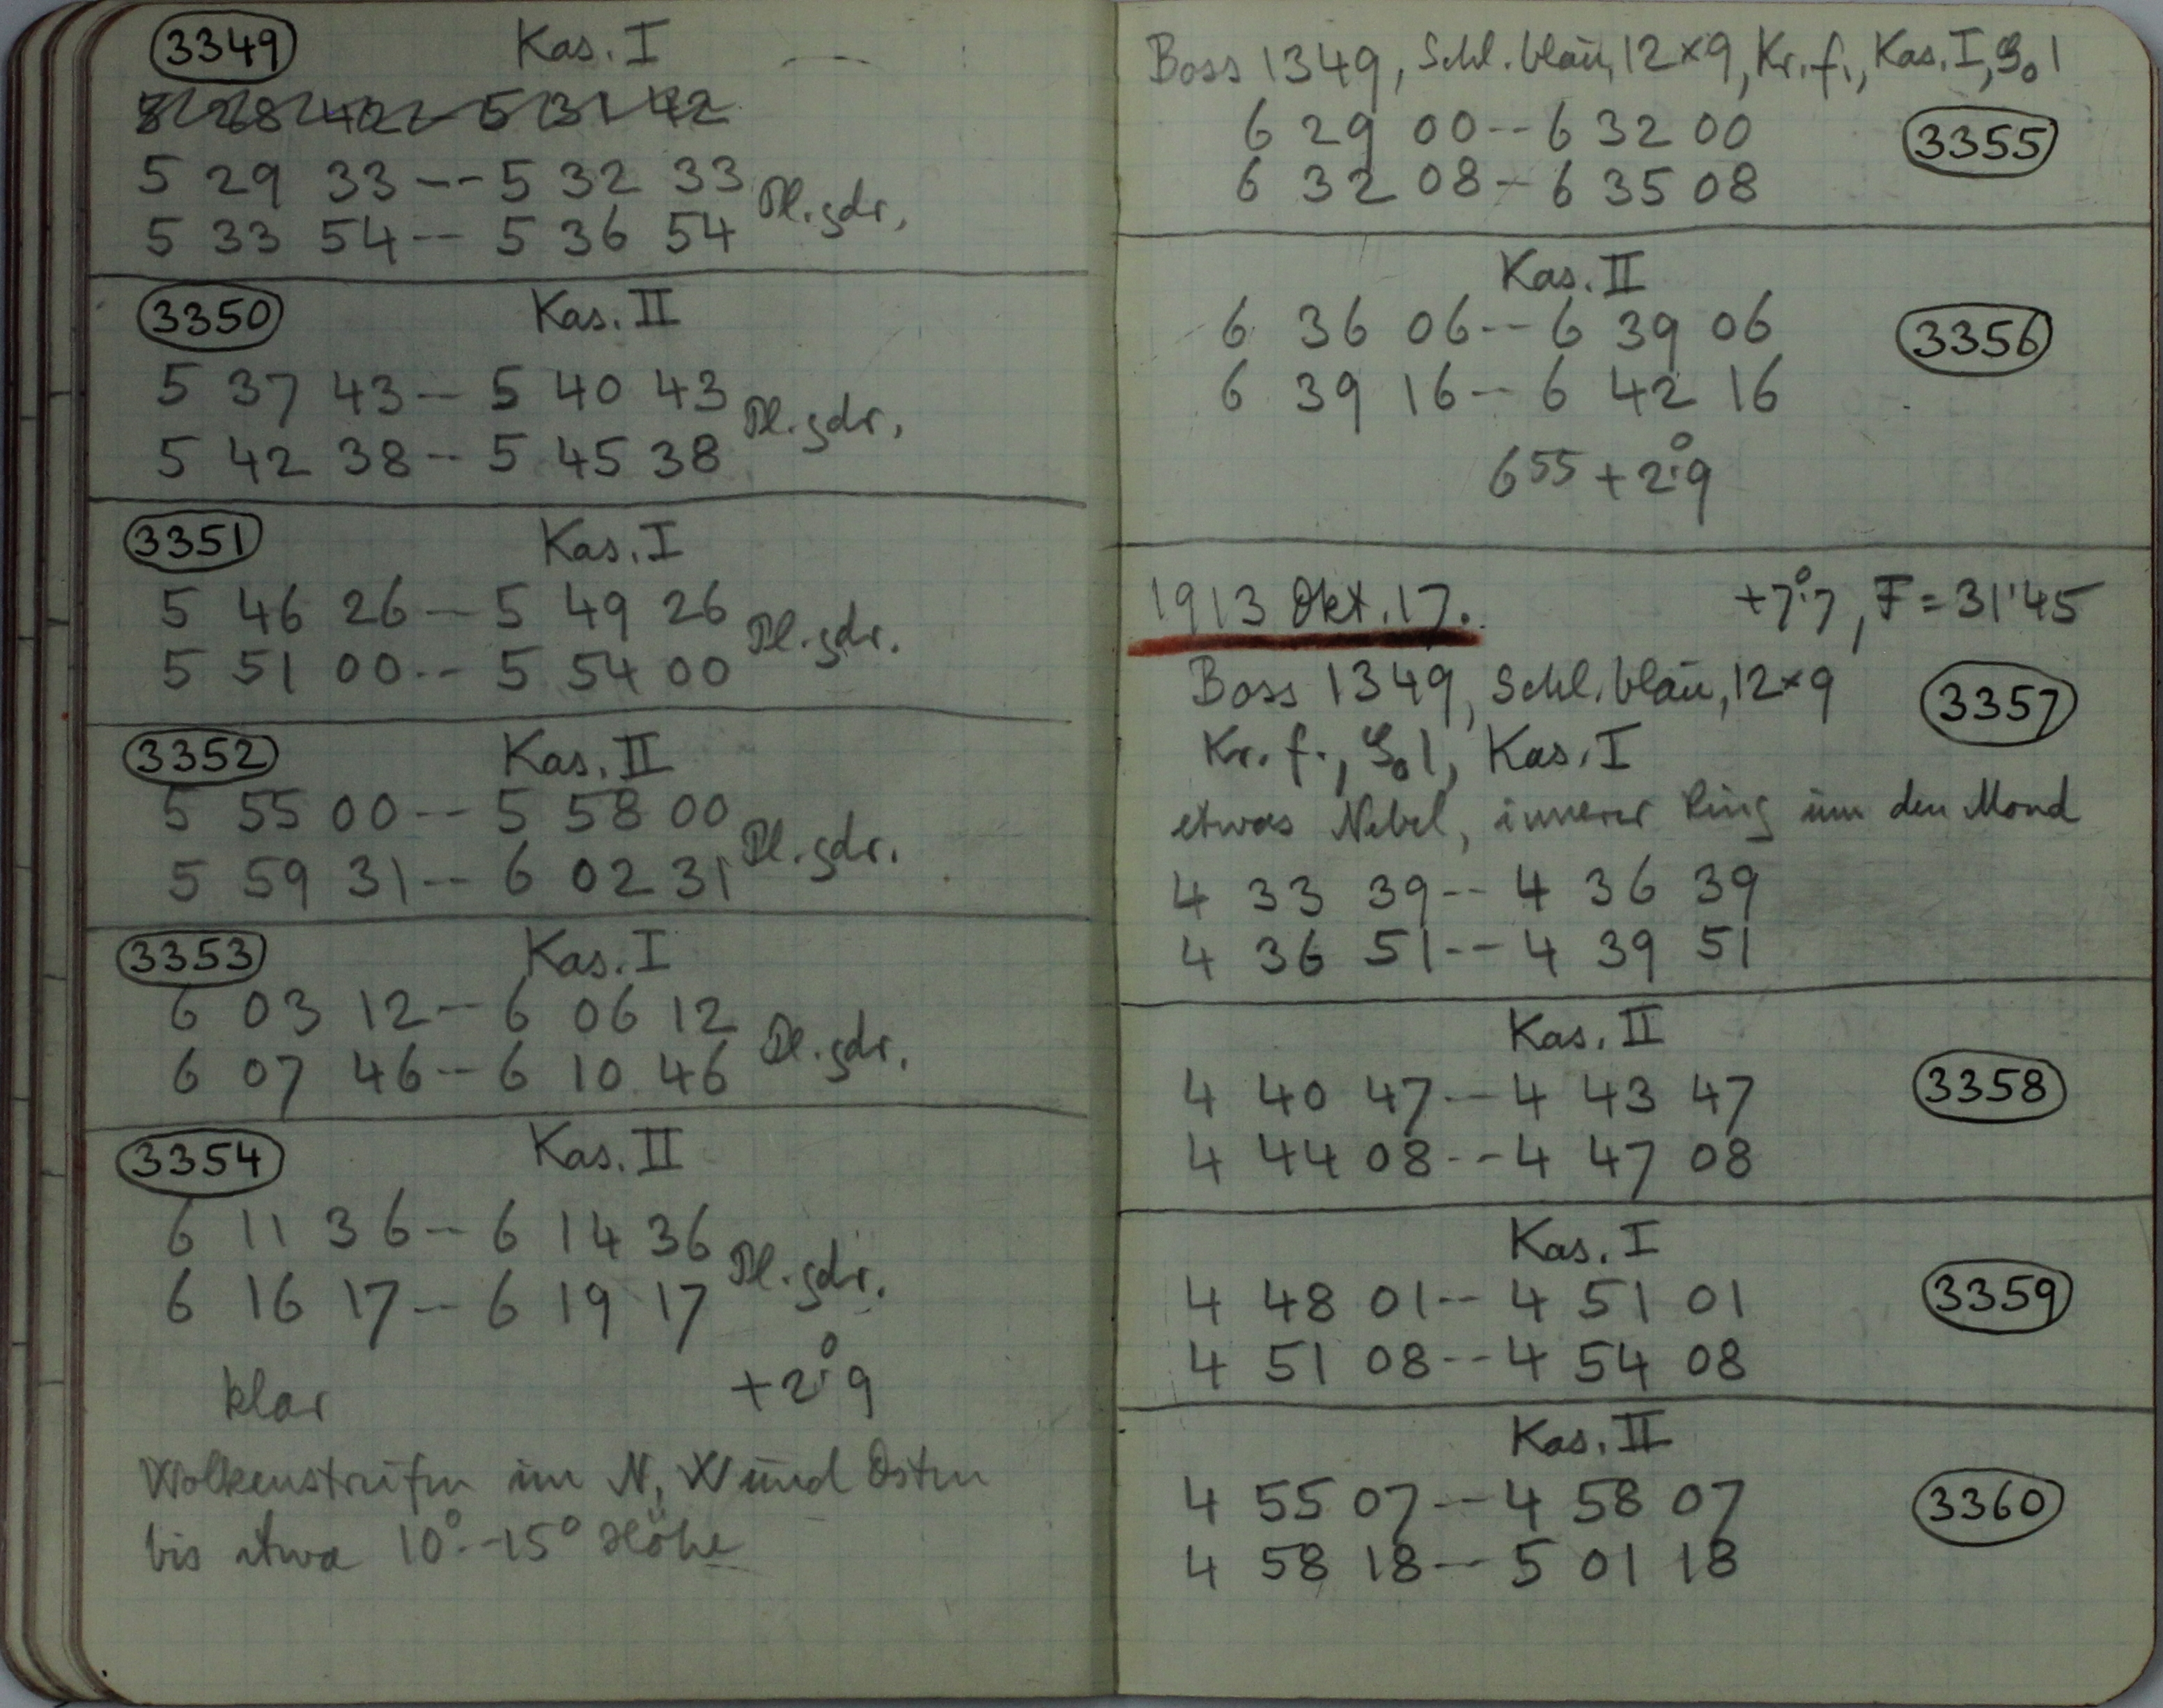 3349 Kas. I
5 29 33 -- 5 32 33
5 33 54 -- 5 36 54 Pl. gdr.
3350 Kas. II
5 37 43 -- 5 40 43
5 42 38 -- 5 45 38 Pl. gdr.
3351 Kas. I
5 46 26 -- 5 49 26
5 51 00 -- 5 54 00 Pl. gdr.
3352 Kas. II
5 55 00 -- 5 58 00
5 59 31 -- 6 02 31 Pl. gdr.
3353 Kas. I
6 03 12 -- 6 06 12
6 07 46 -- 6 10 46 Pl. gdr.
3354 Kas. II
6 11 36 -- 6 14 36
6 16 17 -- 6 19 17 Pl. gdr.
klar +2°.9
Wolkenstreifen im N, W und Osten
bis etwa 10°--15° Höhe
Boss 1349, Schl. blau, 12×9, Kr. f., Kas. I, 1
6 29 00 -- 6 32 00 3355
6 32 08 -- 6 35 08
Kas. II
6 36 06 -- 6 39 06 3356
6 39 16 -- 6 42 16
6 55 +2°.9
1913 Okt. 17. +7°.7, F = 31'45
Boss 1349, Schl. blau, 12×9 3357
Kr. f., 1, Kas. I
etwas Nebel, innerer Ring um den Mond
4 33 39 -- 4 36 39
4 36 51 -- 4 39 51
Kas. II
4 40 47 -- 4 43 47 3358
4 44 08 -- 4 47 08
Kas. I
4 48 01 -- 4 51 01 3359
4 51 08 -- 4 54 08
Kas. II
4 55 07 -- 4 58 07 3360
4 58 18 -- 5 01 18